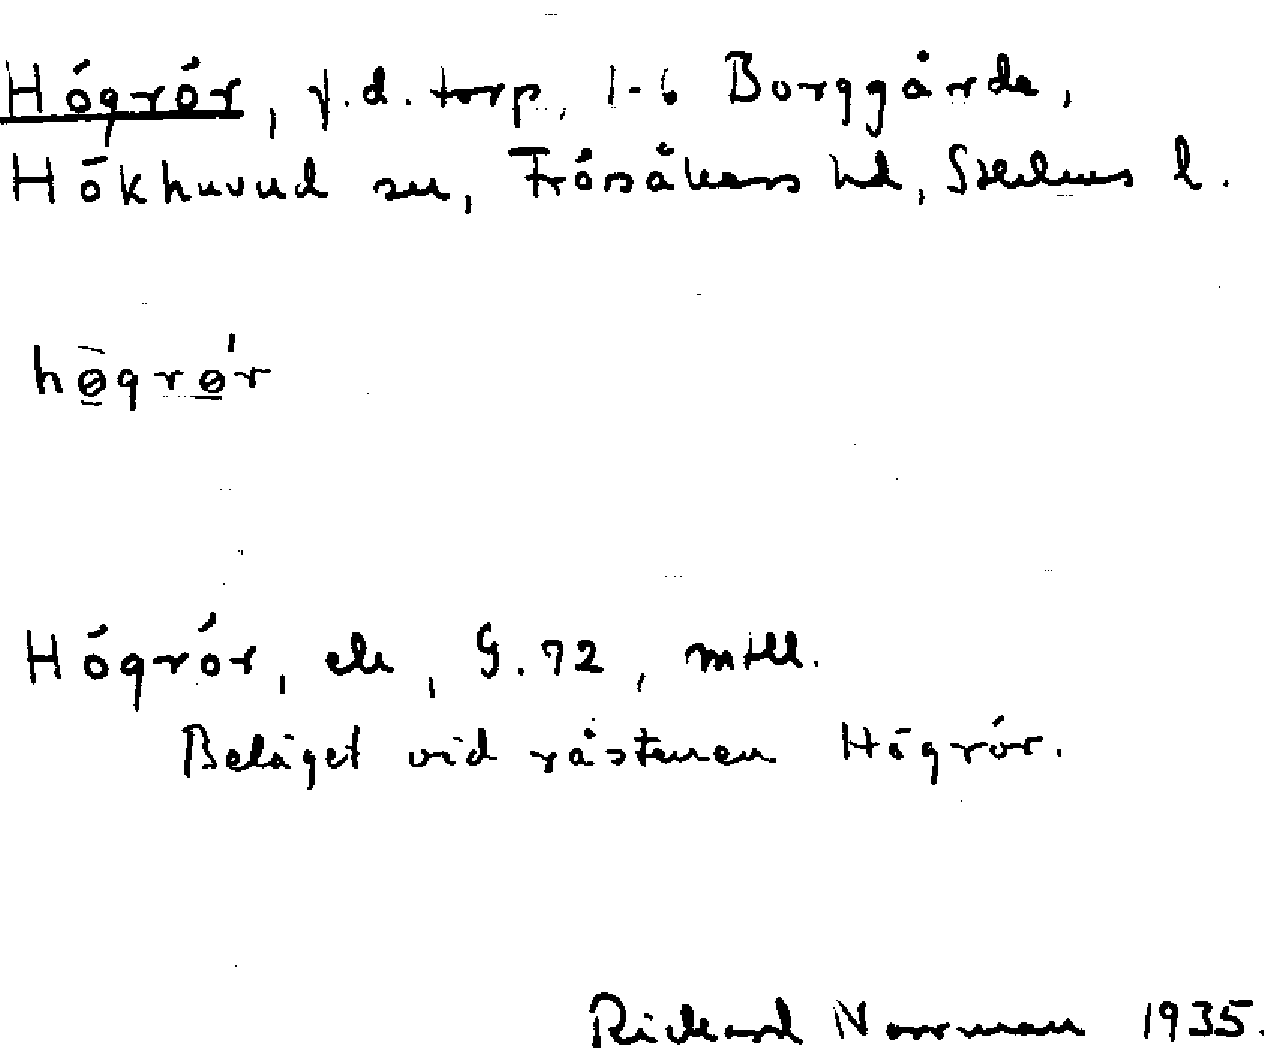 Högrör, f.d. torp, 1-6 Borggårde,
Hökhuvud sn, Frösåkers hd, Sthlms l.
hø̀grø'r
Högrör, ek, G.72, mtll.
Beläget vid råstenen Högrör.
Rickard Norrman 1935.